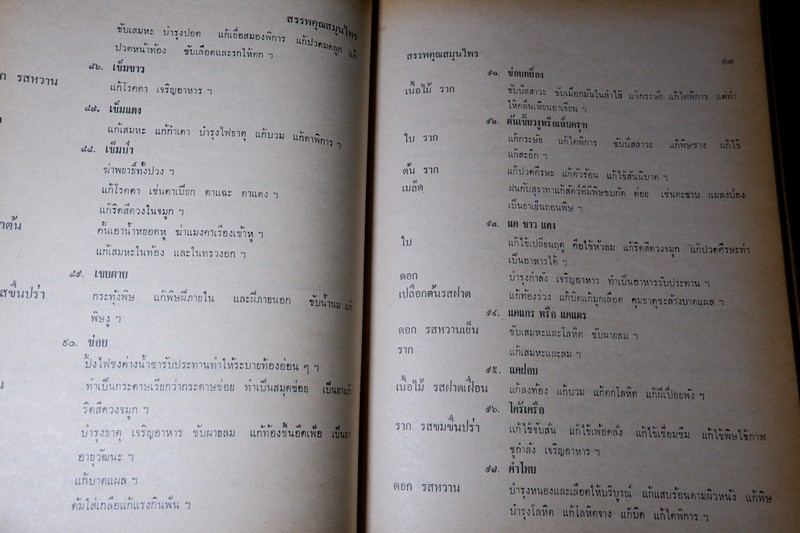 สรรพคุณสมุนไพร
ขับเสมหะ บำรุงปอด แก้เยื่อสมองพิการ แก้ปวดมดลูก แก้
ปวดหน้าท้อง ขับเลือดและรกให้ตก ฯ
ดอก รสหวาน ๘๖. เข็มขาว
แก้โรคตา เจริญอาหาร ฯ
๘๗. เข็มแดง
แก้เสมหะ แก้กำเดา บำรุงไฟธาตุ แก้บวม แก้ตาพิการ ฯ
๘๘. เข็มป่า
ฆ่าพยาธิ์ทั้งปวง ฯ
แก้โรคตา เช่นตาเปียก ตาแฉะ ตาแดง ฯ
แก้ริดสีดวงในจมูก ฯ
คั้นเอาน้ำหยอดหู ฆ่าแมงคาเรืองเข้าหู ฯ
แก้เสมหะในท้อง และในทรวงอก ฯ
๘๙. เขยตาย
รสขื่นปร่า กระทุ้งพิษ แก้พิษฝีภายใน และฝีภายนอก ขับน้ำนม แก้
พิษงู ฯ
๙๐. ข่อย
ปิ้งไฟชงต่างน้ำชารับประทานทำให้ระบายท้องอ่อน ๆ ฯ
ทำเป็นกระดาษเรียกว่ากระดาษข่อย ทำเป็นสมุดข่อย เป็นยาแก้
ริดสีดวงจมูก ฯ
บำรุงธาตุ เจริญอาหาร ขับผายลม แก้ท้องขึ้นอืดเฟ้อ เป็นยา
อายุวัฒนะ ฯ
แก้บาดแผล ฯ
ต้มใส่เกลือแก้แมงกินฟัน ฯ
สรรพคุณสมุนไพร ๑๗
๙๑. ข่อยหย็อง
เนื้อไม้ ราก ขับปัสสาวะ ขับเมือกมันในลำไส้ แก้กระษัย แก้ไตพิการ แต่ทำ
ให้คลื่นเหียนอาเจียน ฯ
๙๒. ต้นเขี้ยวงูหรือเล็บครุฑ
ใบ ราก แก้กระษัย แก้ไตพิการ ขับปัสสาวะ แก้พิษซาง แก้ไข้
แก้สะอึก ฯ
ต้น ราก แก้ปวดศีรษะ แก้ตัวร้อน แก้ไข้สันนิบาต ฯ
เมล็ด ฝนกับสุราทาแก้สัตว์ที่มีพิษขบกัด ต่อย เช่นตะขาบ แมลงป่อง
เป็นยาเย็นถอนพิษ ฯ
๙๓. แค ขาว แดง
ใบ แก้ไข้เปลี่ยนฤดู คือไข้หัวลม แก้ริดสีดวงจมูก แก้ปวดศีรษะทำ
เป็นอาหารได้ ฯ
ดอก บำรุงกำลัง เจริญอาหาร ทำเป็นอาหารรับประทาน ฯ
เปลือกต้นรสฝาด แก้ท้องร่วง แก้บิดแก้มูกเลือด คุมธาตุชะล้างบาดแผล ฯ
๙๔. แคแกร หรือ แคแตร
ดอก รสหวานเย็น ขับเสมหะและโลหิต ขับผายลม ฯ
ราก แก้เสมหะและลม ฯ
๙๕. แคฝอย
เนื้อไม้ รสฝาดเฝื่อน แก้ลงท้อง แก้บวม แก้ตกโลหิต แก้ฝีเปื่อยพัง ฯ
๙๖. ไคร้เครือ
ราก รสขมขื่นปร่า แก้ไข้จับสั่น แก้ไข้เพ้อคลั่ง แก้ไข้เชื่อมซึม แก้ไข้พิษไข้กาฬ
ชูกำลัง เจริญอาหาร ฯ
๙๗. คำไทย
ดอก รสหวาน บำรุงหนองและเลือดให้บริบูรณ์ แก้แสบร้อนตามผิวหนัง แก้พิษ
บำรุงโลหิต แก้โลหิตจาง แก้บิด แก้ไตพิการ ฯ